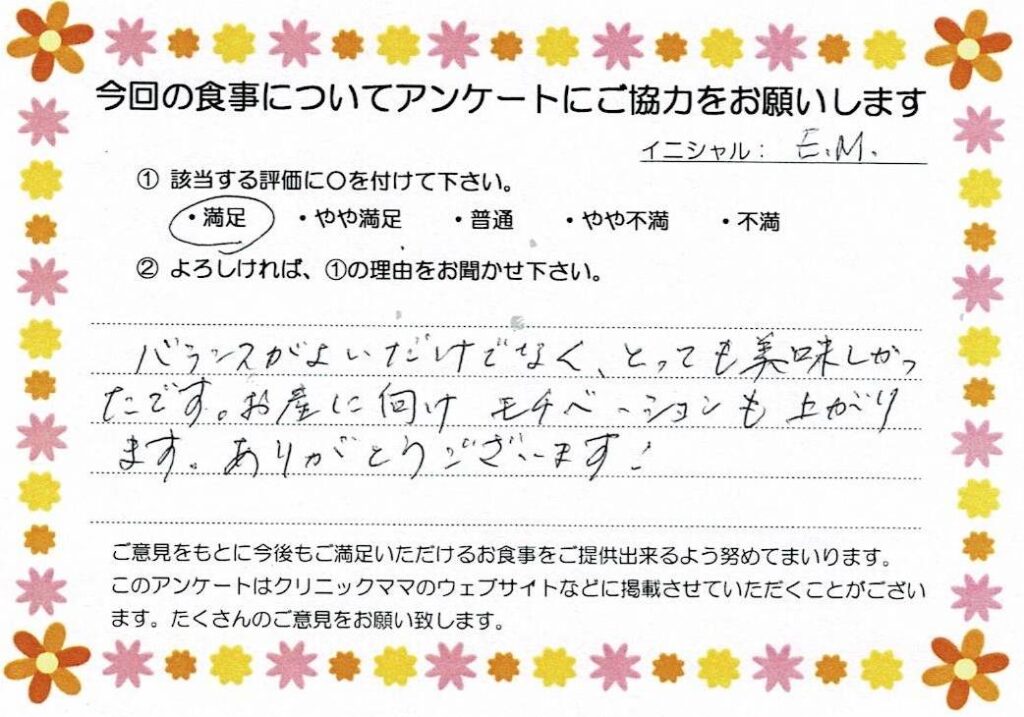 今回の食事についてアンケートにご協力をお願いします
イニシャル： E.M.
① 該当する評価に〇を付けて下さい。
・満足 ・やや満足 ・普通 ・やや不満 ・不満
② よろしければ、①の理由をお聞かせ下さい。
バランスがよいだけでなく、とっても美味しかっ
たです。お産に向け モチベーションも上がり
ます。ありがとうございます！
ご意見をもとに今後もご満足いただけるお食事をご提供出来るよう努めてまいります。
このアンケートはクリニックママのウェブサイトなどに掲載させていただくことがござい
ます。たくさんのご意見をお願い致します。